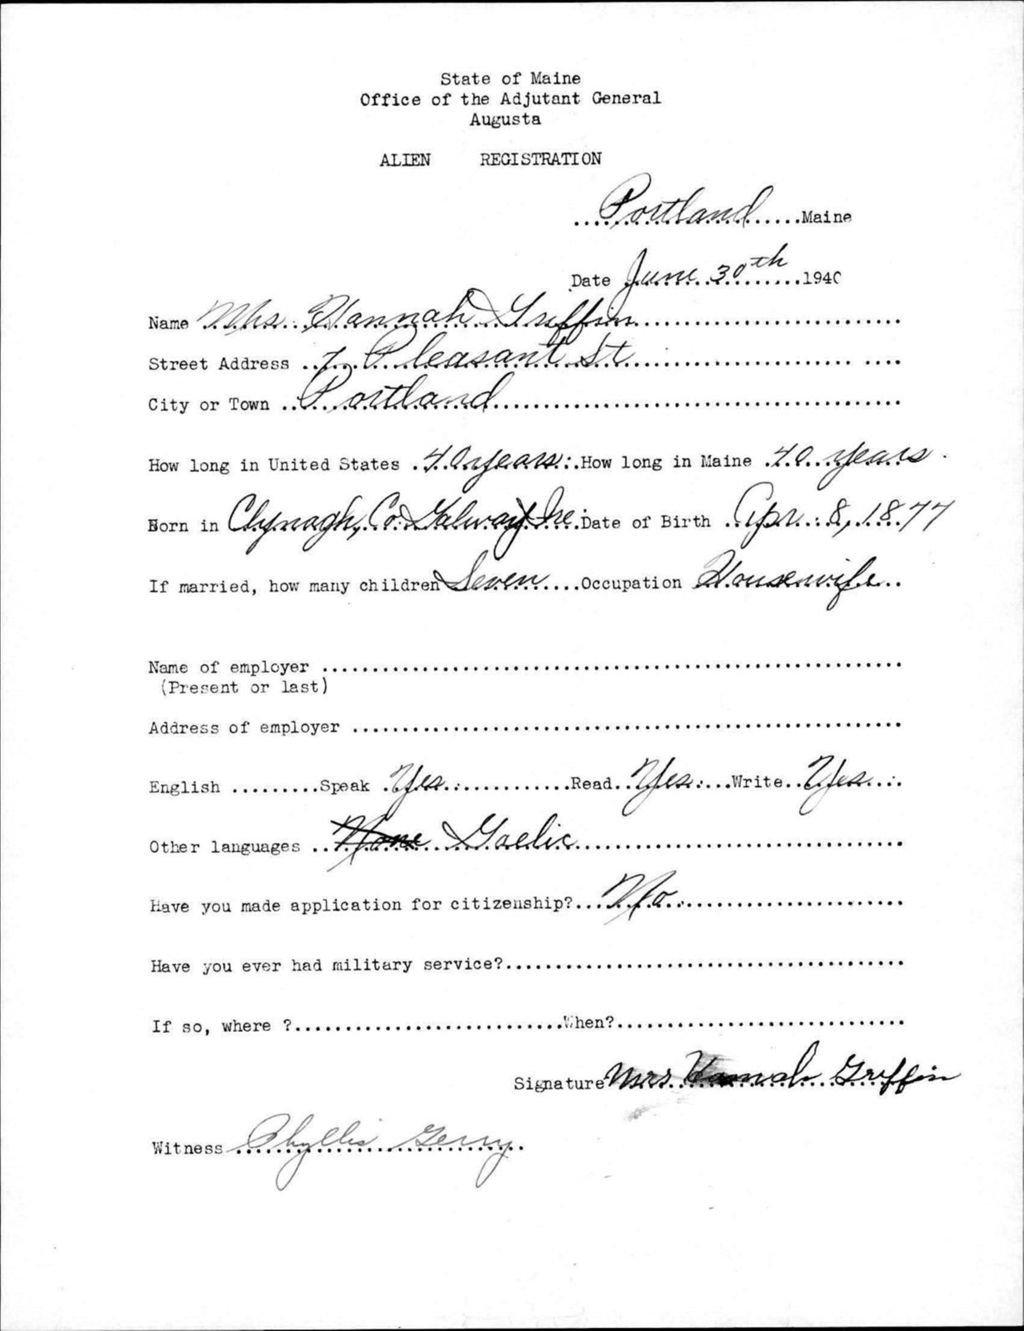 State of Maine
Office of the Adjutant General
Augusta
ALIEN REGISTRATION
Portland Maine
Date June 30th 1940
Name Mrs. Hannah Griffin
Street Address 7 Pleasant St
City or Town Portland
How long in United States 40 years How long in Maine 40 years
Born in Clynagh, Co. Galway Ire. Date of Birth Apr. 8, 1877
If married, how many children Seven Occupation Housewife
Name of employer
(Present or last)
Address of employer
English Speak Yes Read Yes Write Yes
Other languages None Gaelic
Have you made application for citizenship? No
Have you ever had military service?
If so, where ? When?
Signature Mrs Hannah Griffin
Witness Phyllis Gerry